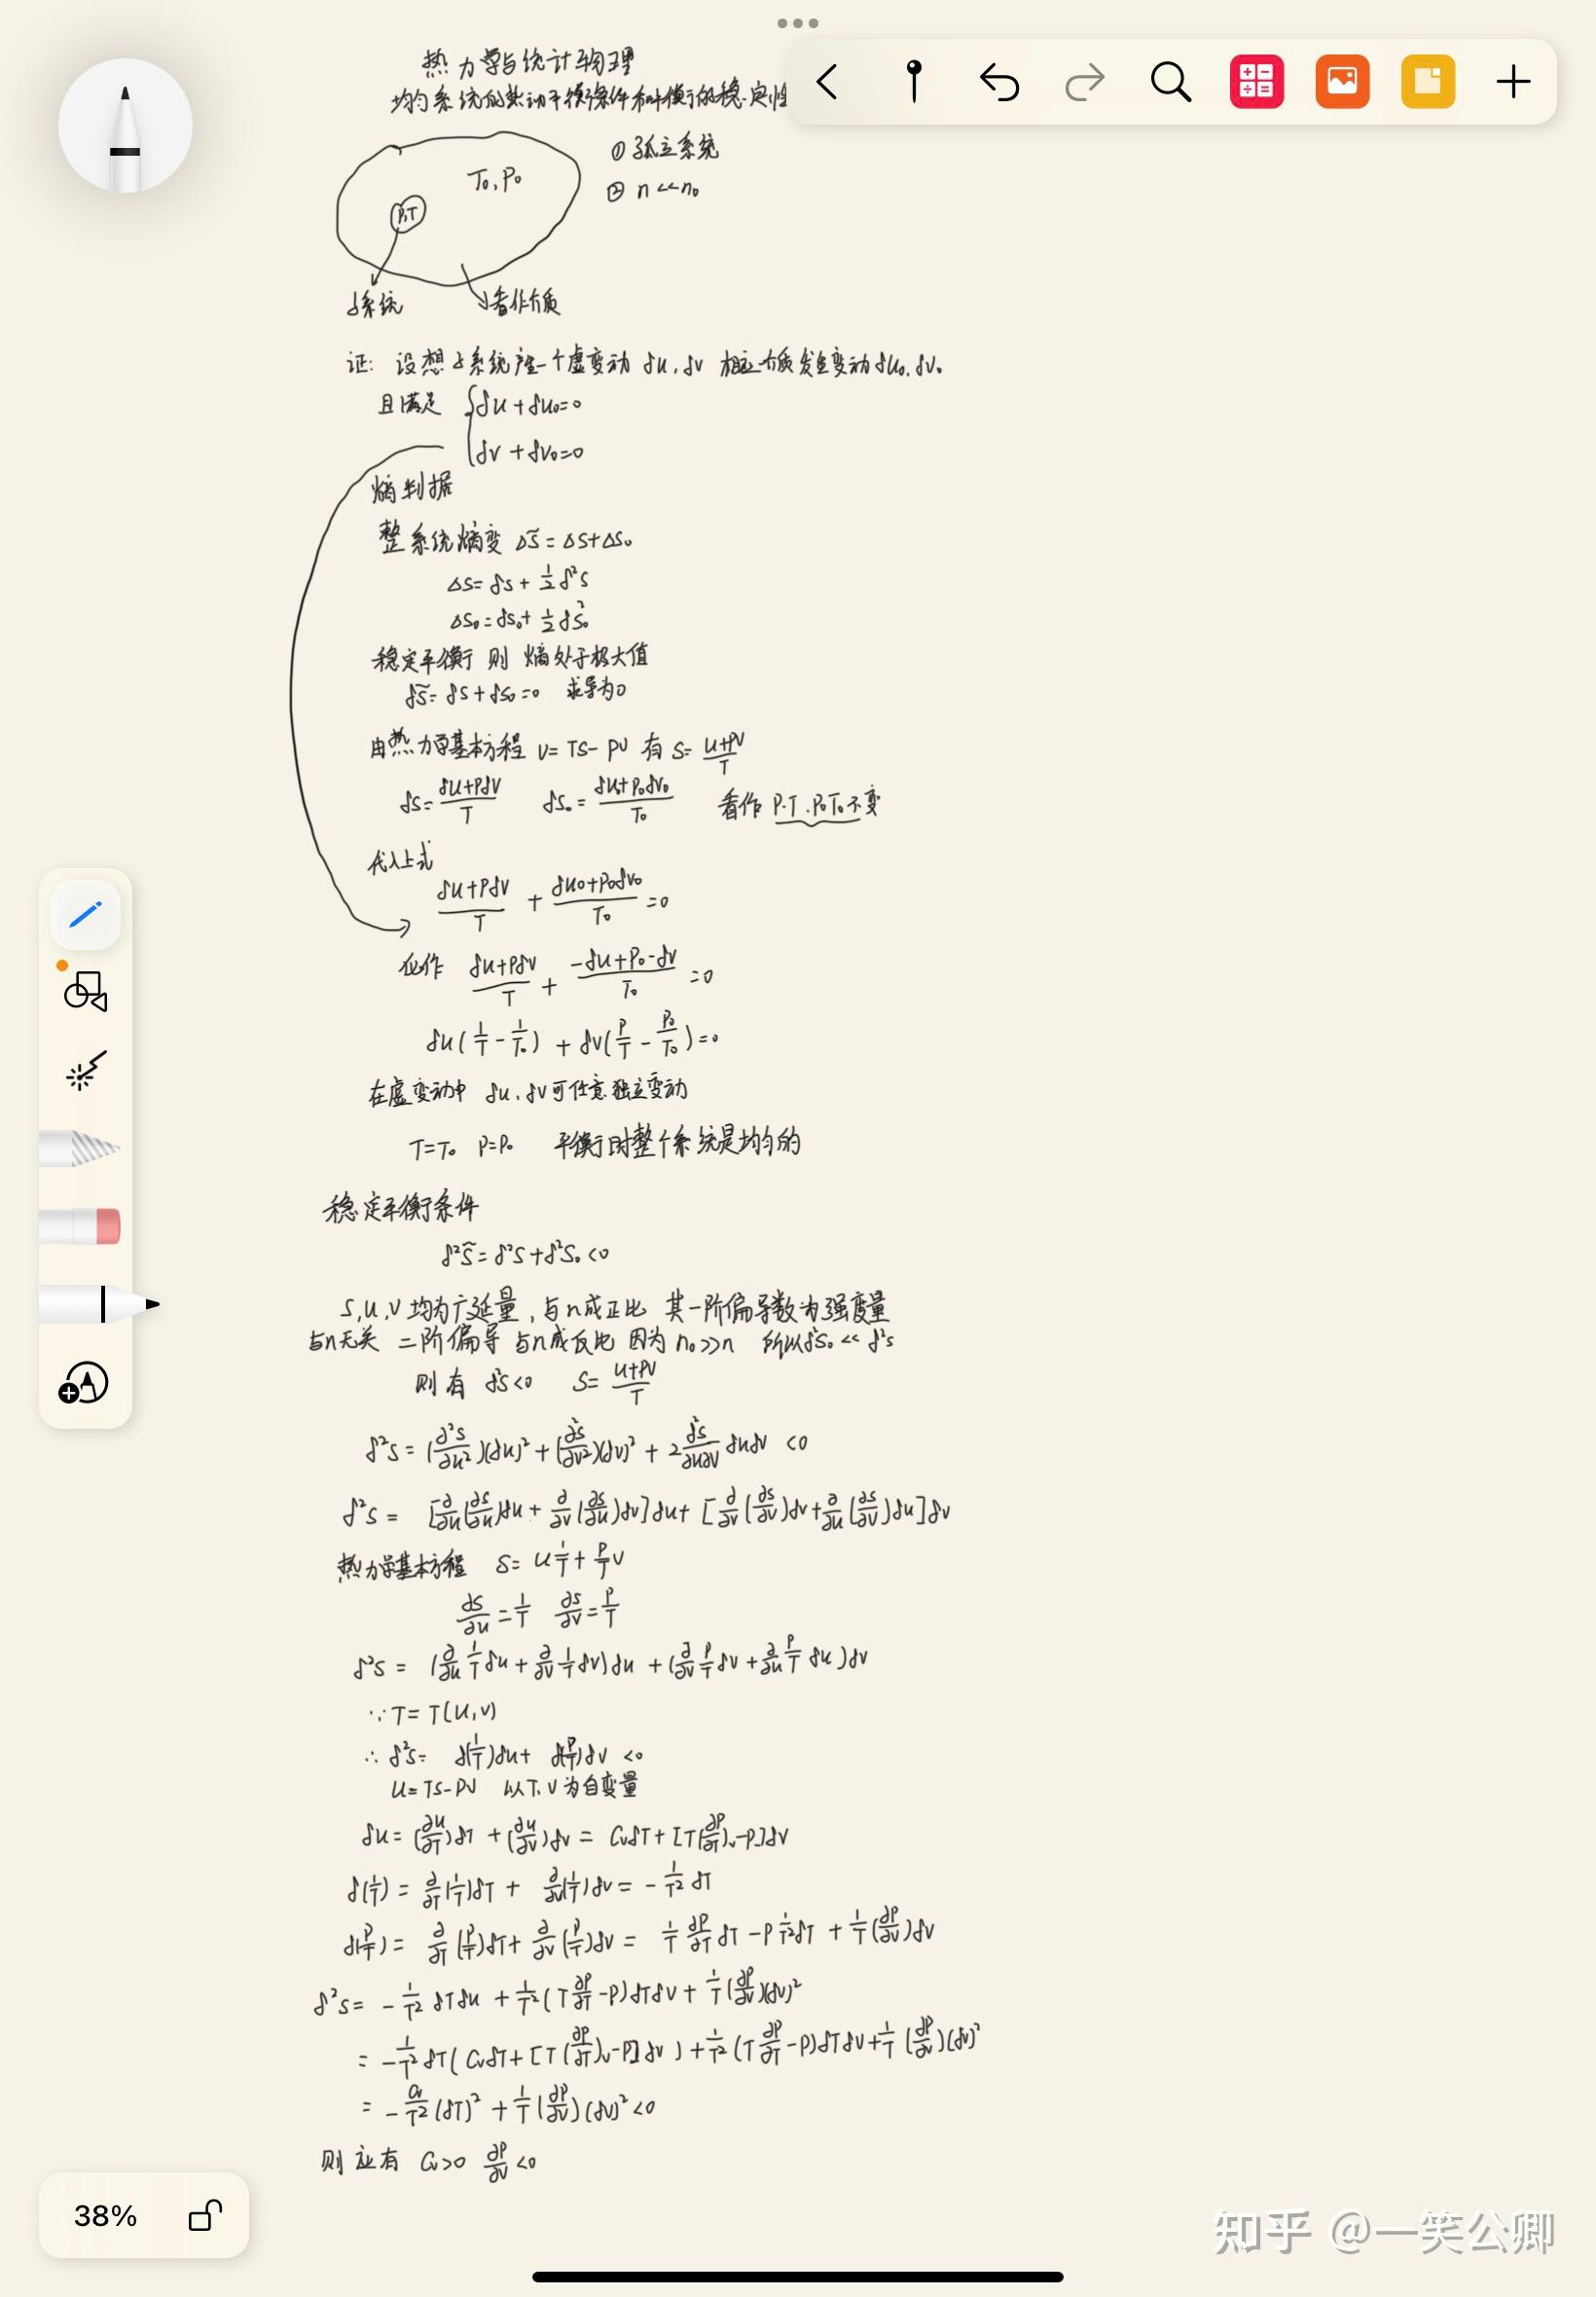 热力学与统计物理
均匀系统的热动平衡条件和平衡的稳定性
T₀, P₀
① 孤立系统
② n << n₀
P,T
子系统
看作介质
证: 设想子系统产生一个虚变动 δU, δV 相应介质发生变动 δU₀, δV₀
且满足 { δU + δU₀ = 0
δV + δV₀ = 0
熵判据
整系统熵变 ΔS̃ = ΔS + ΔS₀
ΔS = δS + ½ δ²S
ΔS₀ = δS₀ + ½ δS₀²
稳定平衡 则 熵处于极大值
δS̃ = δS + δS₀ = 0 求导为0
由热力学基本方程 U = TS - PV 有 S = (U+PV)/T
δS = (δU+PδV)/T δS₀ = (δU₀+P₀δV₀)/T₀ 看作 P.T.P₀T₀不变
代入上式
(δU+PδV)/T + (δU₀+P₀δV₀)/T₀ = 0
化作 (δU+PδV)/T + (-δU+P₀-δV)/T₀ = 0
δU(1/T - 1/T₀) + δV(P/T - P₀/T₀) = 0
在虚变动中 δU, δV可任意独立变动
T=T₀ P=P₀ 平衡时整个系统是均匀的
稳定平衡条件
δ²S̃ = δ²S + δ²S₀ < 0
S, U, V 均为广延量, 与n成正比 其一阶偏导数为强度量
与n无关 二阶偏导 与n成反比 因为 n₀>>n 所以δ²S₀ << δ²S
则有 δ²S<0 S = (U+PV)/T
δ²S = (∂²S/∂U²)(δU)² + (∂²S/∂V²)(δV)² + 2 ∂²S/∂U∂V δUδV < 0
δ²S = [∂/∂U(∂S/∂U)δU + ∂/∂V(∂S/∂U)δV]δU + [∂/∂V(∂S/∂V)δV + ∂/∂U(∂S/∂V)δU]δV
热力学基本方程 S = U 1/T + P/T V
∂S/∂U = 1/T ∂S/∂V = P/T
δ²S = (∂/∂U 1/T δU + ∂/∂V 1/T δV)δU + (∂/∂V P/T δV + ∂/∂U P/T δU)δV
∵ T = T(U,V)
∴ δ²S = δ(1/T)δU + δ(P/T)δV < 0
U = TS - PV 以T, V为自变量
δU = (∂U/∂T)δT + (∂U/∂V)δV = CᵥδT + [T(∂P/∂T)ᵥ-P]δV
δ(1/T) = ∂/∂T(1/T)δT + ∂/∂V(1/T)δV = - 1/T² δT
δ(P/T) = ∂/∂T(P/T)δT + ∂/∂V(P/T)δV = 1/T ∂P/∂T δT - P 1/T² δT + 1/T(∂P/∂V)δV
δ²S = - 1/T² δTδU + 1/T²(T ∂P/∂T - P)δTδV + 1/T(∂P/∂V)(δV)²
= - 1/T² δT(CᵥδT + [T(∂P/∂T)ᵥ-P]δV) + 1/T²(T ∂P/∂T - P)δTδV + 1/T(∂P/∂V)(δV)²
= - Cᵥ/T² (δT)² + 1/T(∂P/∂V)(δV)² < 0
则应有 Cᵥ>0 ∂P/∂V <0
38%
知乎 @一笑公卿